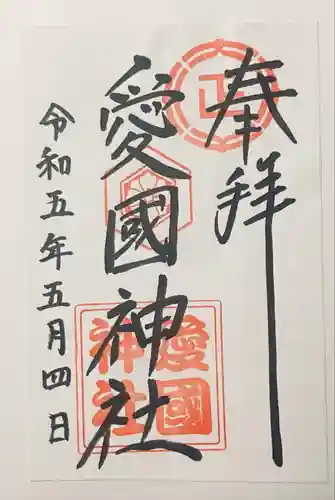 奉拝
正
愛國神社
愛國
神社
令和五年五月四日